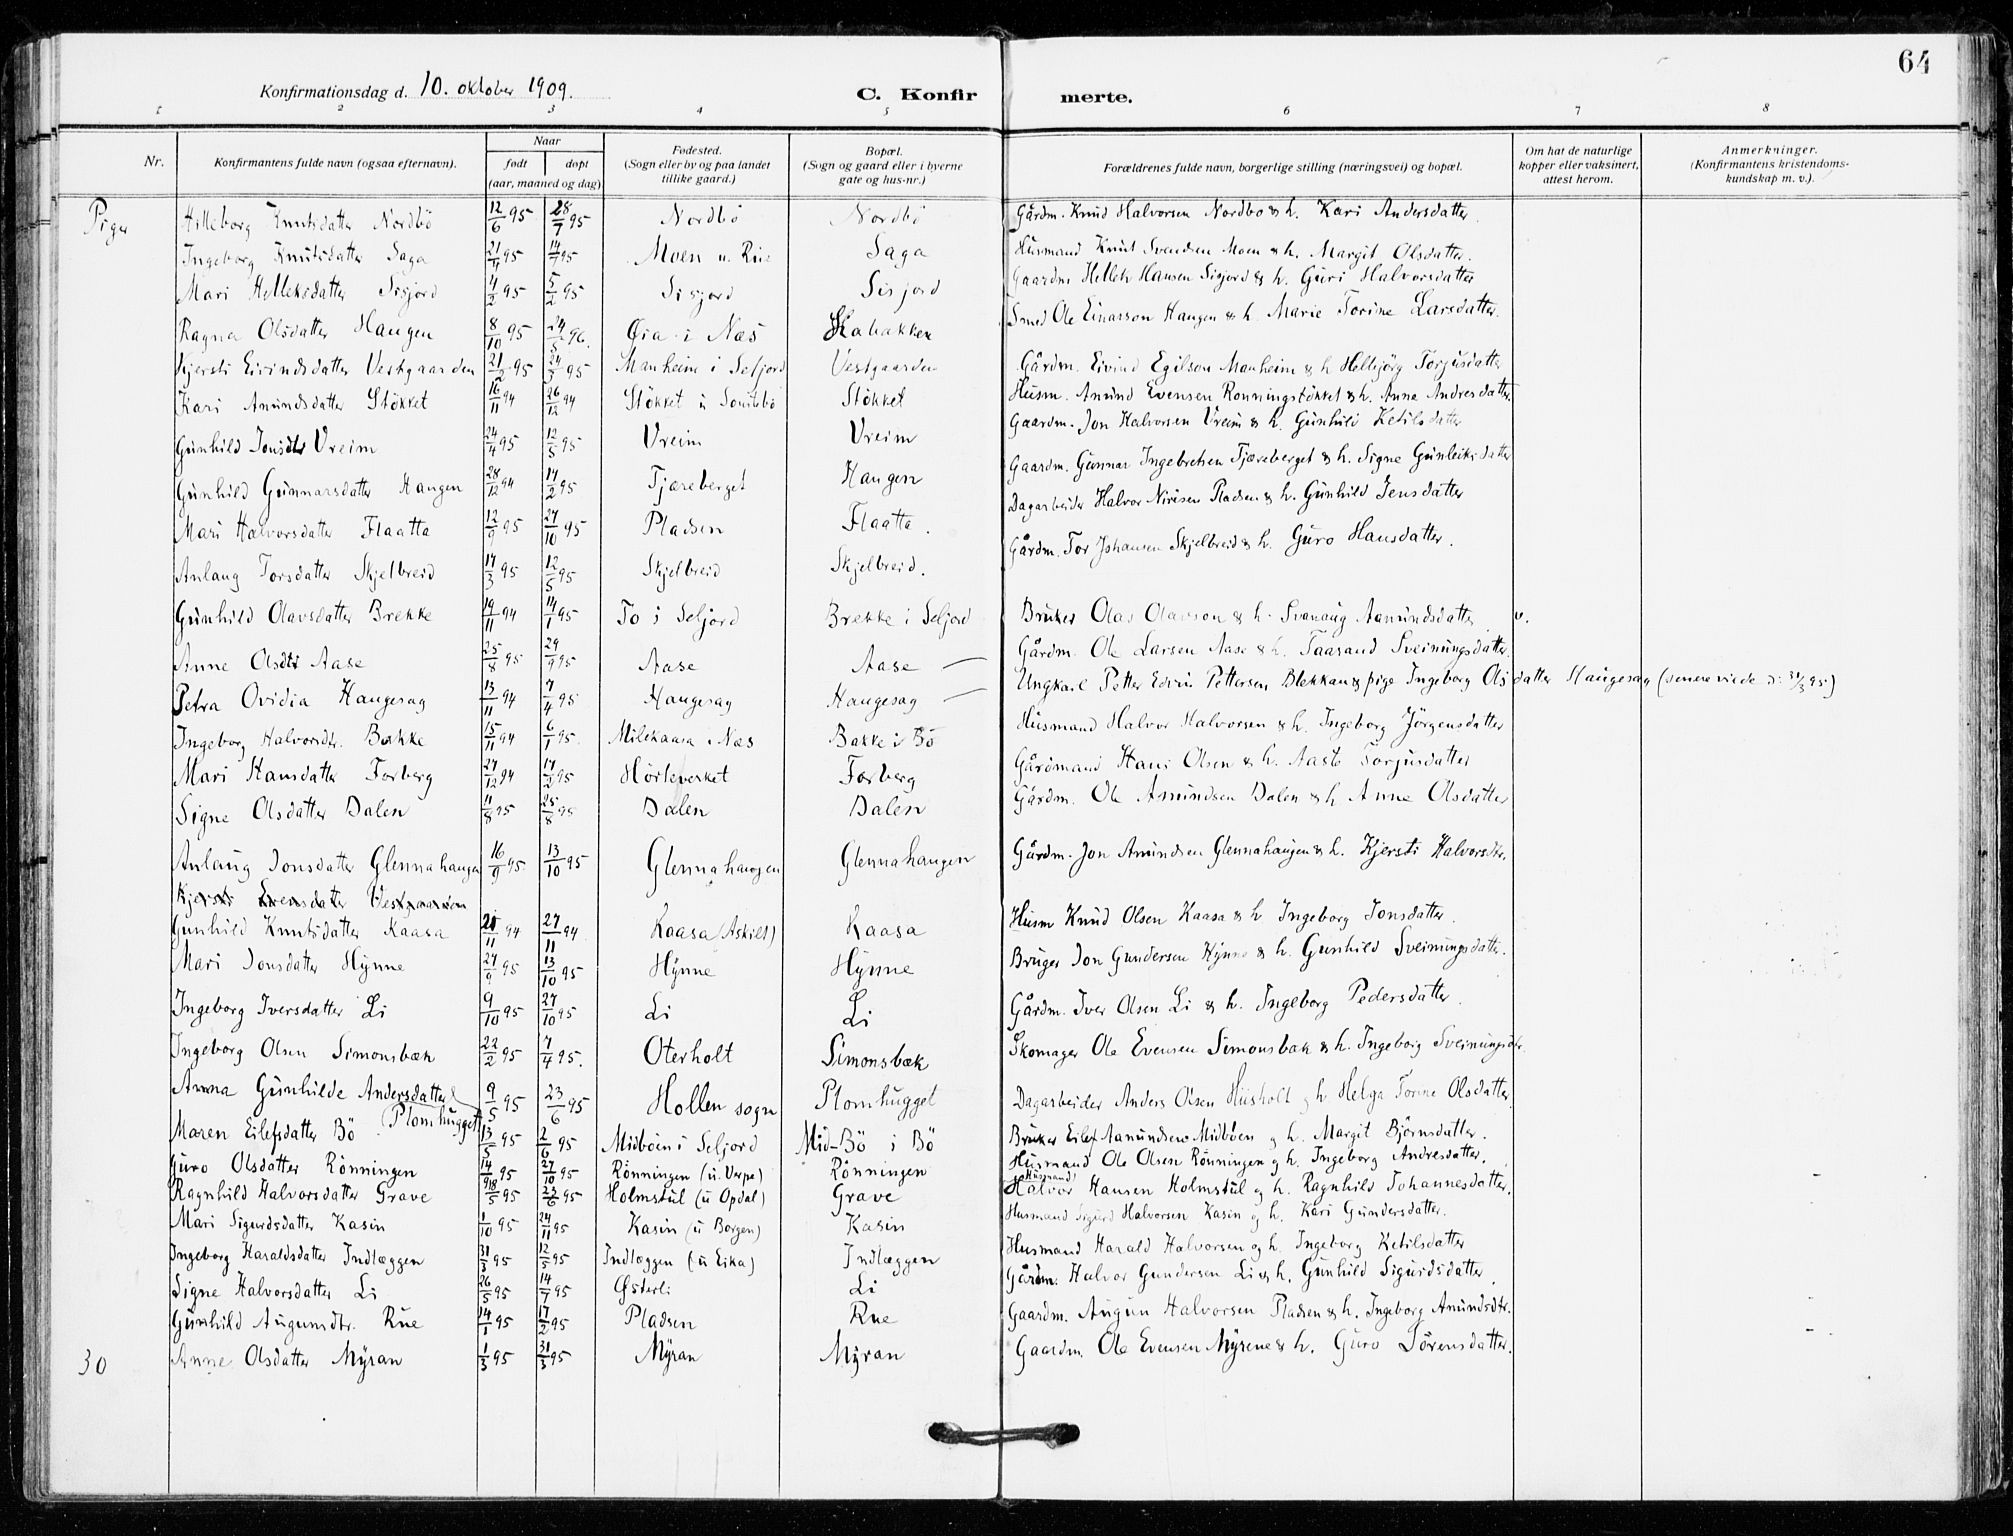 64
Konfirmationsdag d. 10. oktober 1909.
C. Konfirmerte.
1 2 3 4 5 6 7 8
Nr. | Konfirmantens fulde navn (ogsaa efternavn). | Naar født | døpt (aar, maaned og dag) | Fødested. (Sogn eller by og paa landet tillike gaard.) | Bopæl. (Sogn og gaard eller i byerne gate og hus-nr.) | Forældrenes fulde navn, borgerlige stilling (næringsvei) og bopæl. | Om hat de naturlige kopper eller vaksinert, attest herom. | Anmerkninger. (Konfirmantens kristendoms-kundskap m. v.).
Piger Hilleborg Knutsdatter Nordbö 12/6 95 28/7 95 Nordbö Nordbö Gårdm. Knud Halvorsen Nordbo & h. Kari Andersdatter
Ingeborg Knutsdatter Saga 21/4 95 14/7 95 Moen u. Rue Saga Husmand Knut Svendsen Moen & h. Margit Olsdatter.
Mari Helleksdatter Sisjord 4/2 95 5/2 95 Sisjord Sisjord Gaardm Hellek Hansen Sisjord & h. Guri Halvorsdatter
Ragna Olsdatter Haugen 8/10 95 24/5 96. Øia i Næs Skabakken Smed Ole Einarsson Haugen & h. Marie Torine Larsdatter.
Kjersti Eivindsdatter Vestgaarden 21/2 95 24/3 95 Manheim i Seljord Vestgaarden Gårdm. Eivind Egilson Manheim & h Hellbjörg Torjusdatter
Kari Anundsdatter Stökket 16/11 94 26/12 94 Stökket u Stökket Husm. Anund Evensen Ronningstökket & h. Anne Andresdatter.
Gunhild Jonsdtr Vreim 24/4 95 12/5 95 Vreim Vreim Gaardm. Jon Halvorsen Vreim & h. Gunhild Ketilsdatter
Gunhild Gunnarsdatter Haugen 28/12 94 17/2 95 Tjæreberget Haugen Gaardm. Gunnar Ingebretsen Tjæreberget & h. Signe Gunleiksdatter
Mari Halvorsdatter Flaatta 12/9 95 27/10 95 Pladsen Flaatta. Dagarbeider Halvor Nirisen Pladsen & h. Gunhild Jensdatter
Anlaug Torsdatter Skjelbreid 17/3 95 12/5 95 Skjelbreid Skjelbreid. Gårdm. Tor Johansen Skjelbreid & h. Guro Hansdatter.
Gunhild Olavsdatter Brekke 19/11 94 14/1 95 To i Seljord Brekke i Seljord Bruker Olav Olavson & h. Svanaug Aamundsdatter v.
Anne Olsdtr Aase 25/8 95 29/9 95 Aase Aase — Gårdm. Ole Larsen Aase & h. Taarand Sveinungsdatter.
Petra Ovidia Haugesag 13/11 94 7/4 95 Haugesag Haugesag — Ungkarl Petter Edvin Pettersen Blekkan & pige Ingeborg Olsdatter Haugesag (senere viede d: 31/3 95)
Ingeborg Halvorsdtr. Bakke 15/11 94 6/1 95. Milekaasa i Næs Bakke i Bö Husmand Halvor Halvorsen & h. Ingeborg Jörgensdatter
Mari Hansdatter Forberg 27/12 94 17/2 95 Hörteverket Forberg Gårdmand Hans Olsen & h. Aaste Torjusdatter
Signe Olsdatter Dalen 11/8 95 25/8 95 Dalen Dalen Gårdm. Ole Amundsen Dalen & h Anne Olsdatter
Anlaug Jonsdatter Glennahaugen 16/9 95 13/10 95 Glennahaugen Glennahaugen Gårdm. Jon Amundsen Glennahaugen & h. Kjersti Halvorsdtr.
Kjersti Vestgaarden
Gunhild Knutsdatter Kaasa 20/11 94 27/11 94 Kaasa (Askilt) Kaasa Husm Knud Olsen Kaasa & h Ingeborg Jonsdatter.
Mari Jonsdatter Hynne 27/9 95 13/10 95 Hynne Hynne Bruger Jon Gundersen Hynne & h. Gunhild Sveinungsdatter.
Ingeborg Iversdatter Li 9/10 95 27/10 95 Li Li Gårdm. Iver Olsen Li & h. Ingeborg Pedersdatter.
Ingeborg Olsen Simonsbæk 22/2 95 7/4 95. Oterholt Simonsbæk Skomager Ole Evensen Simonsbæk & h. Ingeborg Sveinungsdtr.
Anna Gunhilde Andersdatter Plomhugget 9/5 95 23/6 95 Hollen sogn Plomhugget Dagarbeider Anders Olsen Husholt g h Helga Torine Olsdatter.
Maren Eilefsdatter Bö 13/5 95 2/6 95 Midböen i Seljord Mid-Bö i Bö Bruker Eilef Aanundsen Midböen g h. Margit Björnsdatter.
Guro Olsdatter Rönningen 14/9 95 27/10 95 Rönningen (u. Verpe) Rönningen Husmand Ole Olsen Rönningen g h. Ingeborg Andresdatter.
Ragnhild Halvorsdatter Grave 18/5 95 23/6 95 Holmstul (u Opdal) Grave (Husmand) Halvor Hansen Holmstul g h. Ragnhild Johannesdatter.
Mari Sigurdsdatter Kasin 1/10 95 24/11 95 Kasin (u Borgen) Kasin Husmand Sigurd Halvorsen Kasin g h. Kari Gundersdatter.
Ingeborg Haraldsdatter Indlæggen 31/3 95 12/5 95 Indlæggen (u Eika) Indlæggen Husmand Harald Halvorsen g h. Ingeborg Ketilsdatter
Signe Halvorsdatter Li 26/5 95 14/7 95 Österli Li Gårdm. Halvor Gundersen Li & h. Gunhild Sigurdsdatter.
Gunhild Augunsdtr. Rue 14/1 95 17/2 95 Pladsen Rue Gaardm. Augun Halvorsen Pladsen & h. Ingeborg Amundsdtr.
30 Anne Olsdatter Myran 1/3 95 31/3 95 Myran Myran Gaardm. Ole Evensen Myrene & h. Guro Sörensdatter.